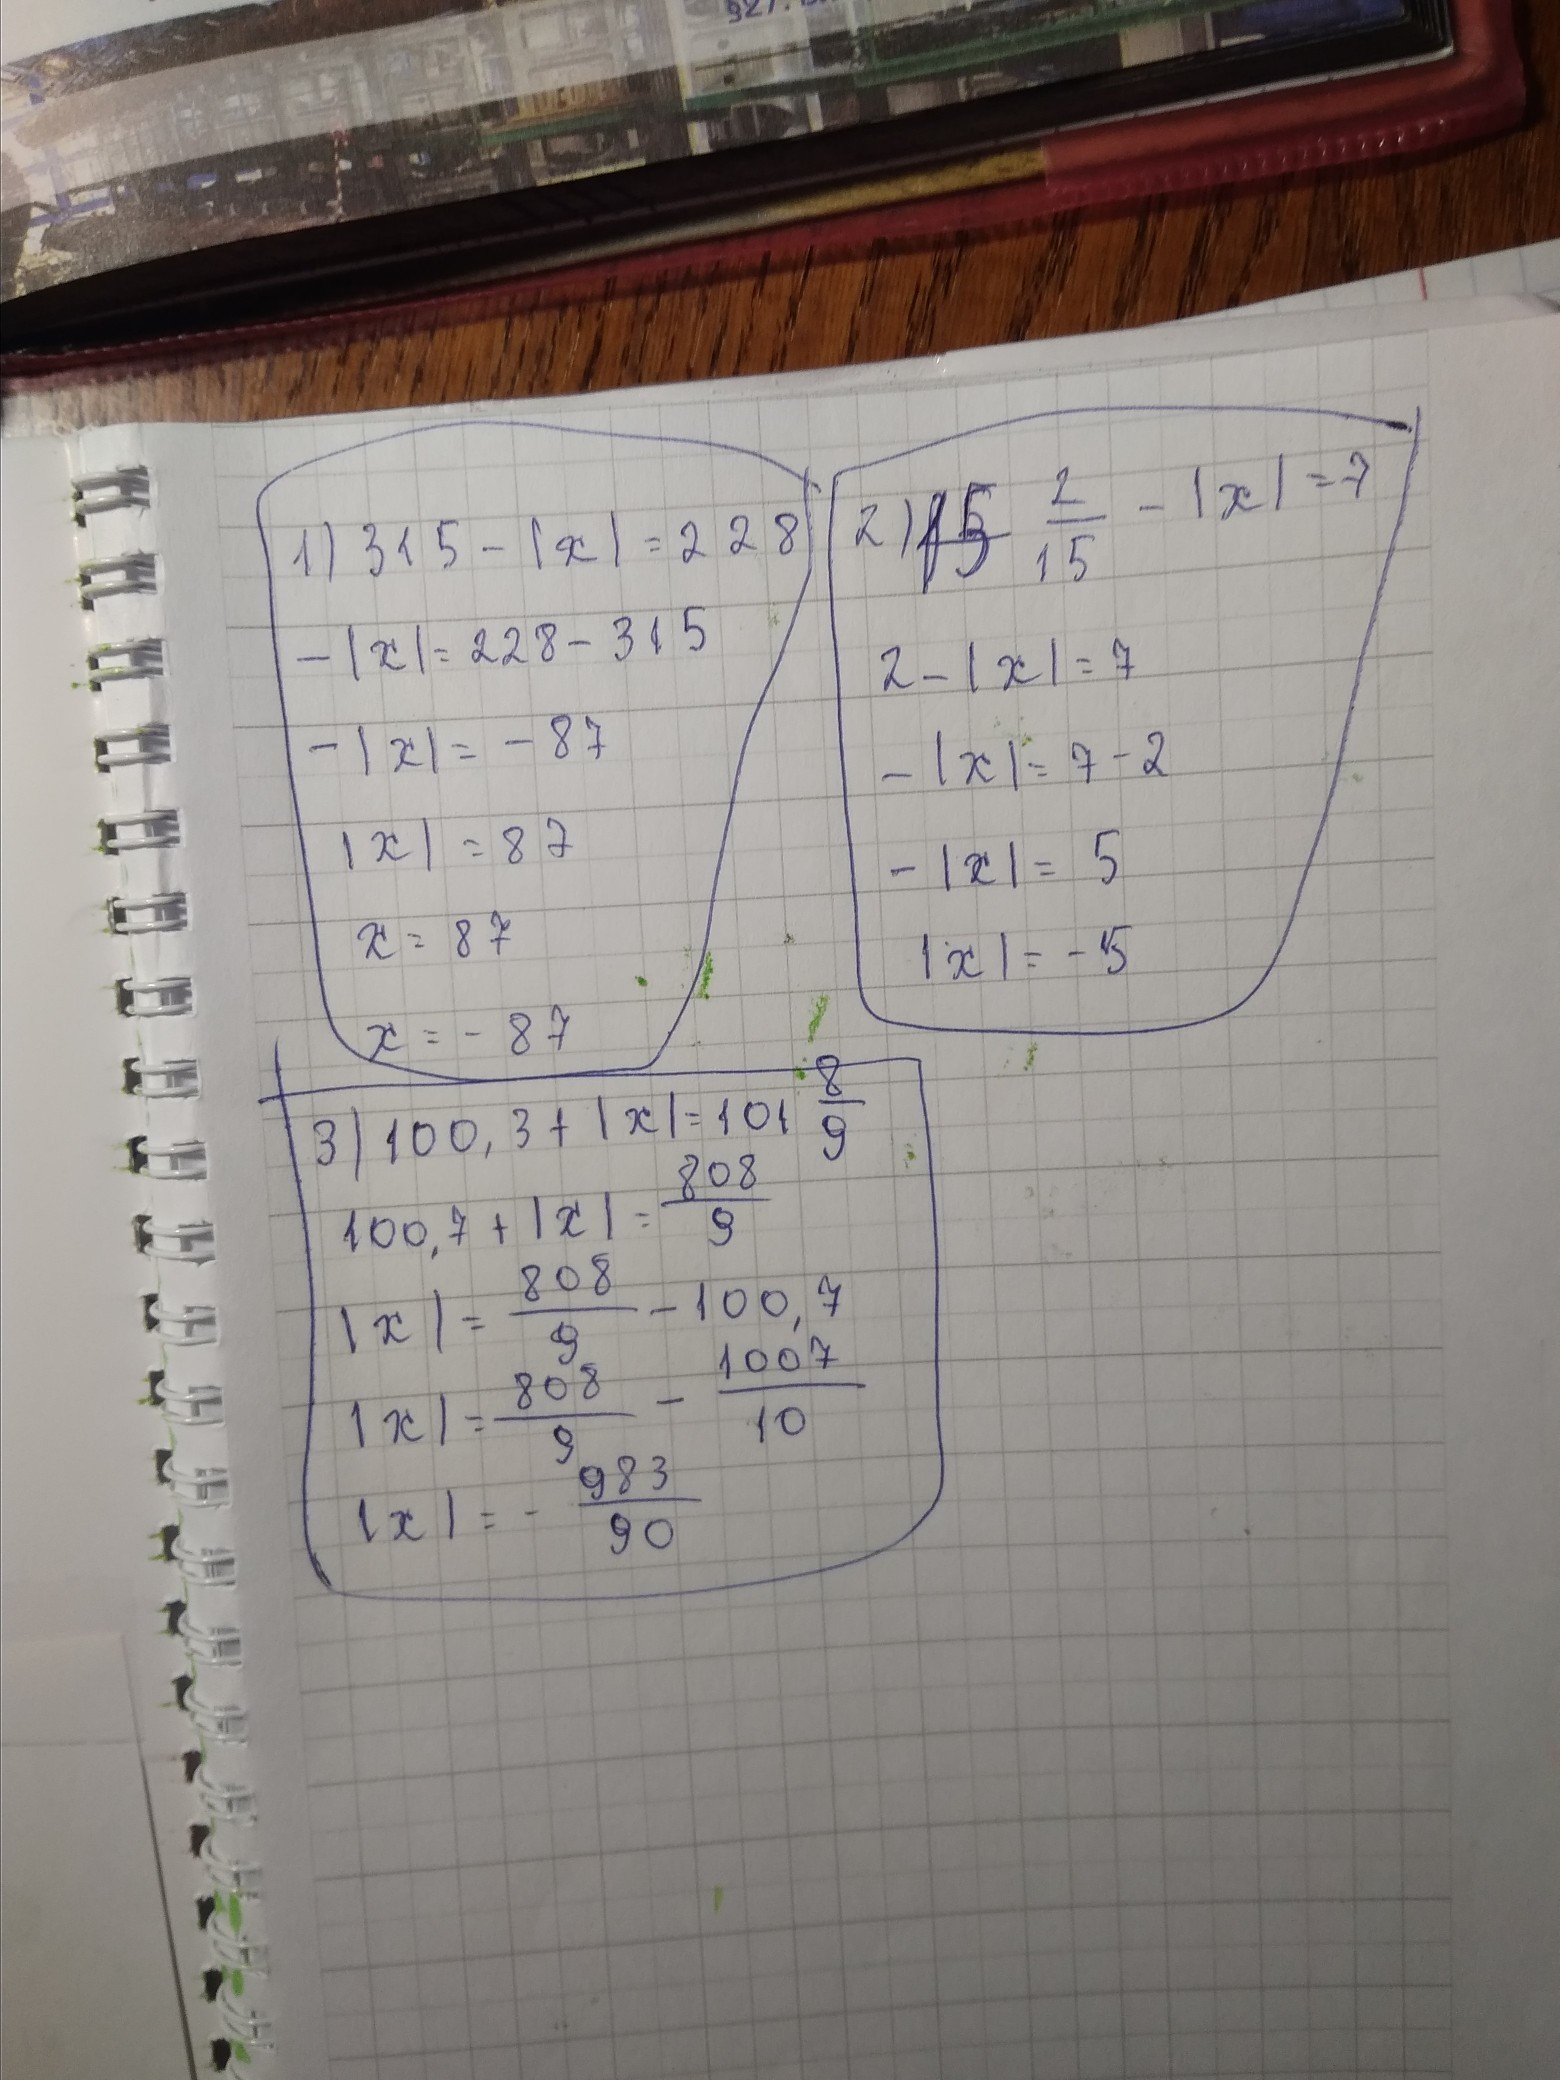 1) 315 - |x| = 228
-|x| = 228 - 315
-|x| = -87
|x| = 87
x = 87
x = -87
2) 2/15 - |x| = 7
2 - |x| = 7
-|x| = 7 - 2
-|x| = 5
|x| = -5
3) 100,3 + |x| = 101 8/9
100,7 + |x| = 808/9
|x| = 808/9 - 100,7
|x| = 808/9 - 1007/10
|x| = - 983/90